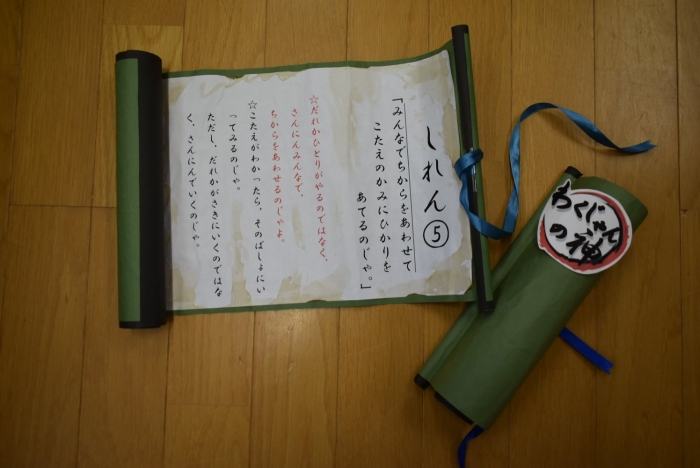 しれん⑤
『みんなでちからをあわせて
こたえのかみにひかりを
あてるのじゃ。』
☆だれかひとりがやるのではなく、
さんにんみんなで、
ちからをあわせるのじゃよ。
☆こたえがわかったら、そのばしょにい
ってみるのじゃ。
ただし、だれかがさきにいくのではな
く、さんにんでいくのじゃ。
わくじゃん
の神